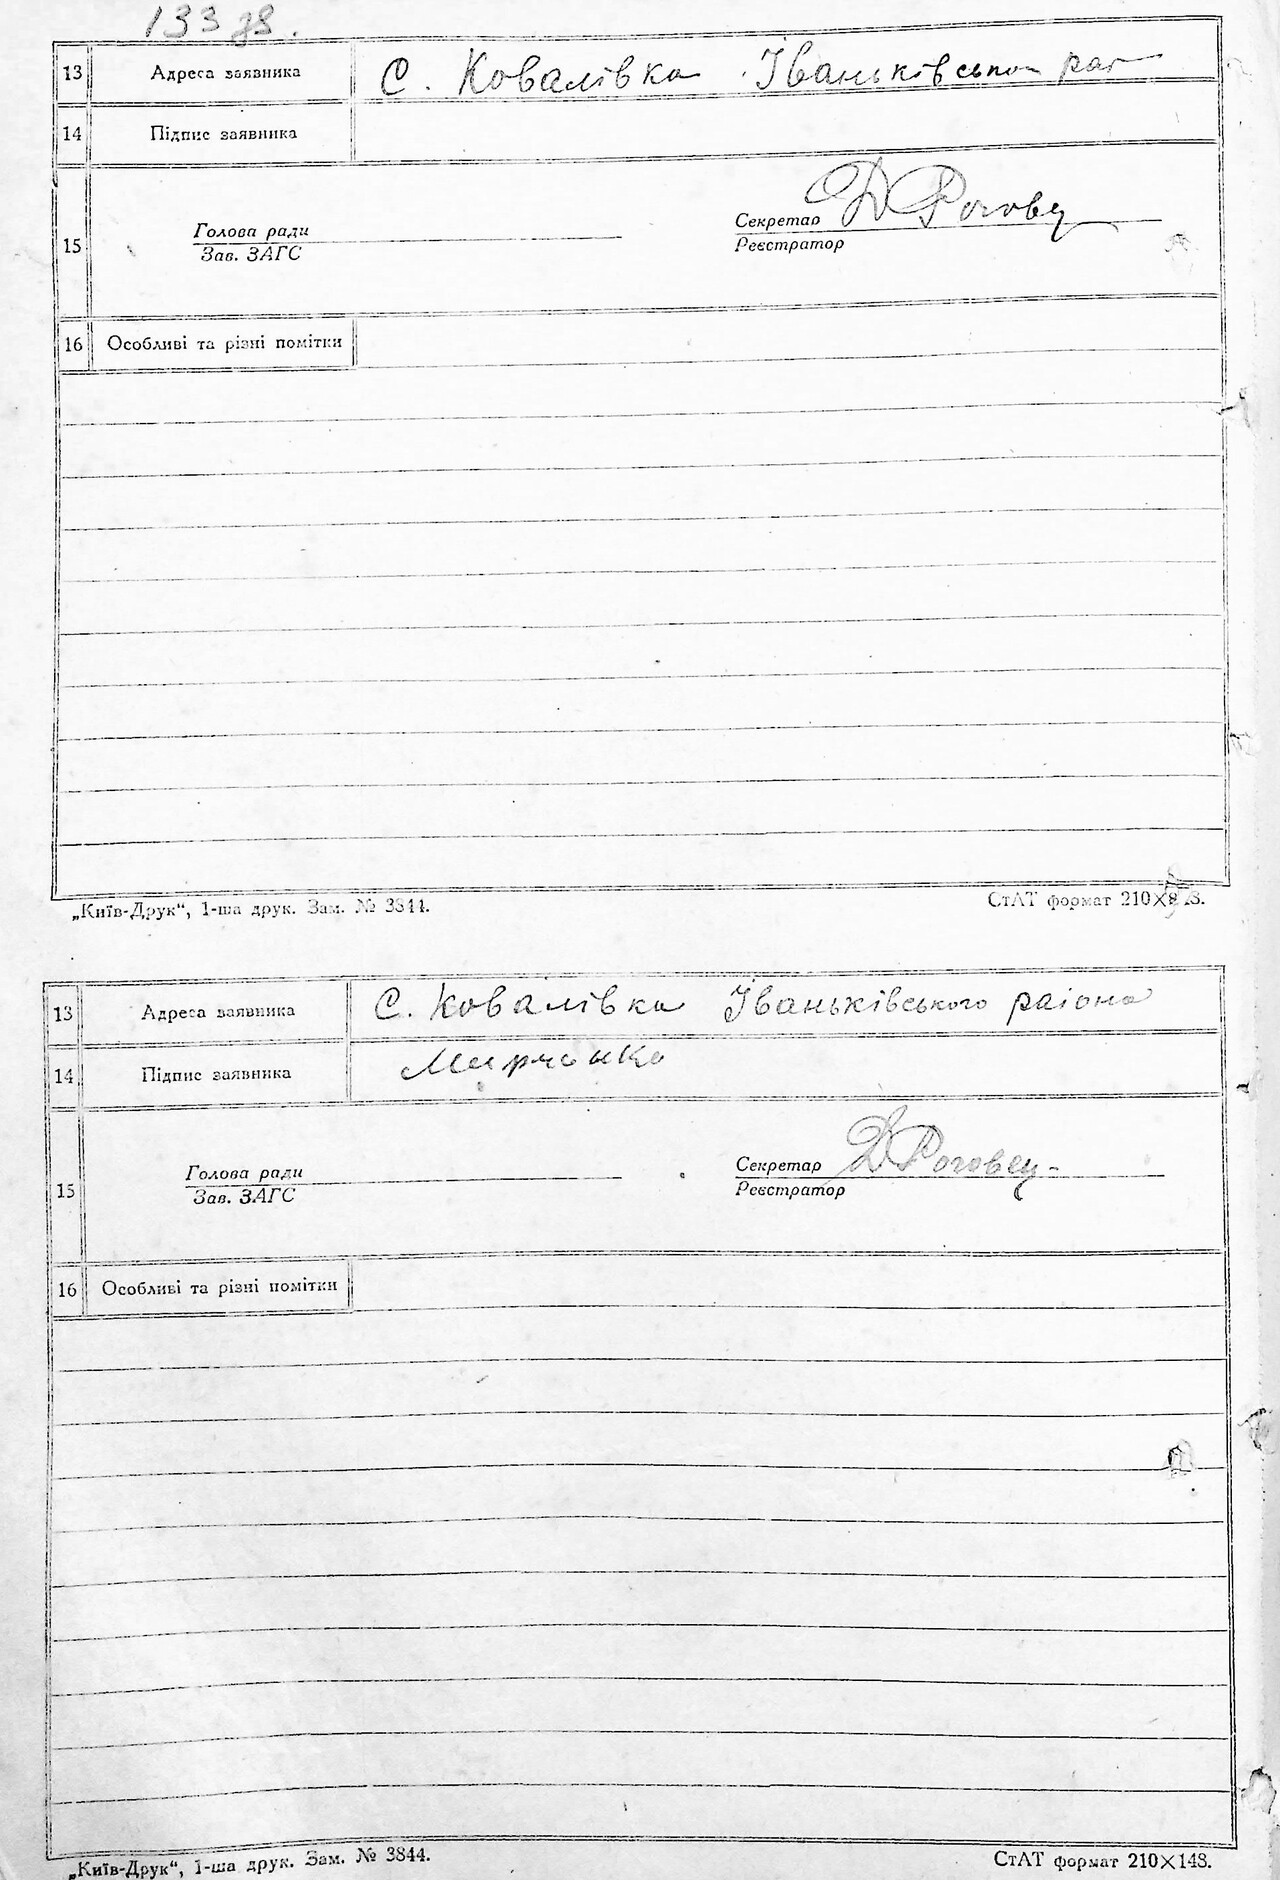 133 зв.
13 Адреса заявника С. Ковалівка Іваньківського
14 Підпис заявника
Секретар Д Роговец
Голова ради
15 Зав. ЗАГС Реєстратор
16 Особливі та різні помітки
„Київ-Друк“, 1-ша друк. Зам. № 3844. СтАТ формат
13 Адреса заявника С. Ковалівка Іваньківського раіона
14 Підпис заявника
Голова ради Секретар Д Роговец
15 Зав. ЗАГС Реєстратор
16 Особливі та різні помітки
„Київ-Друк“, 1-ша друк. Зам. № 3844. СтАТ формат 210×148.